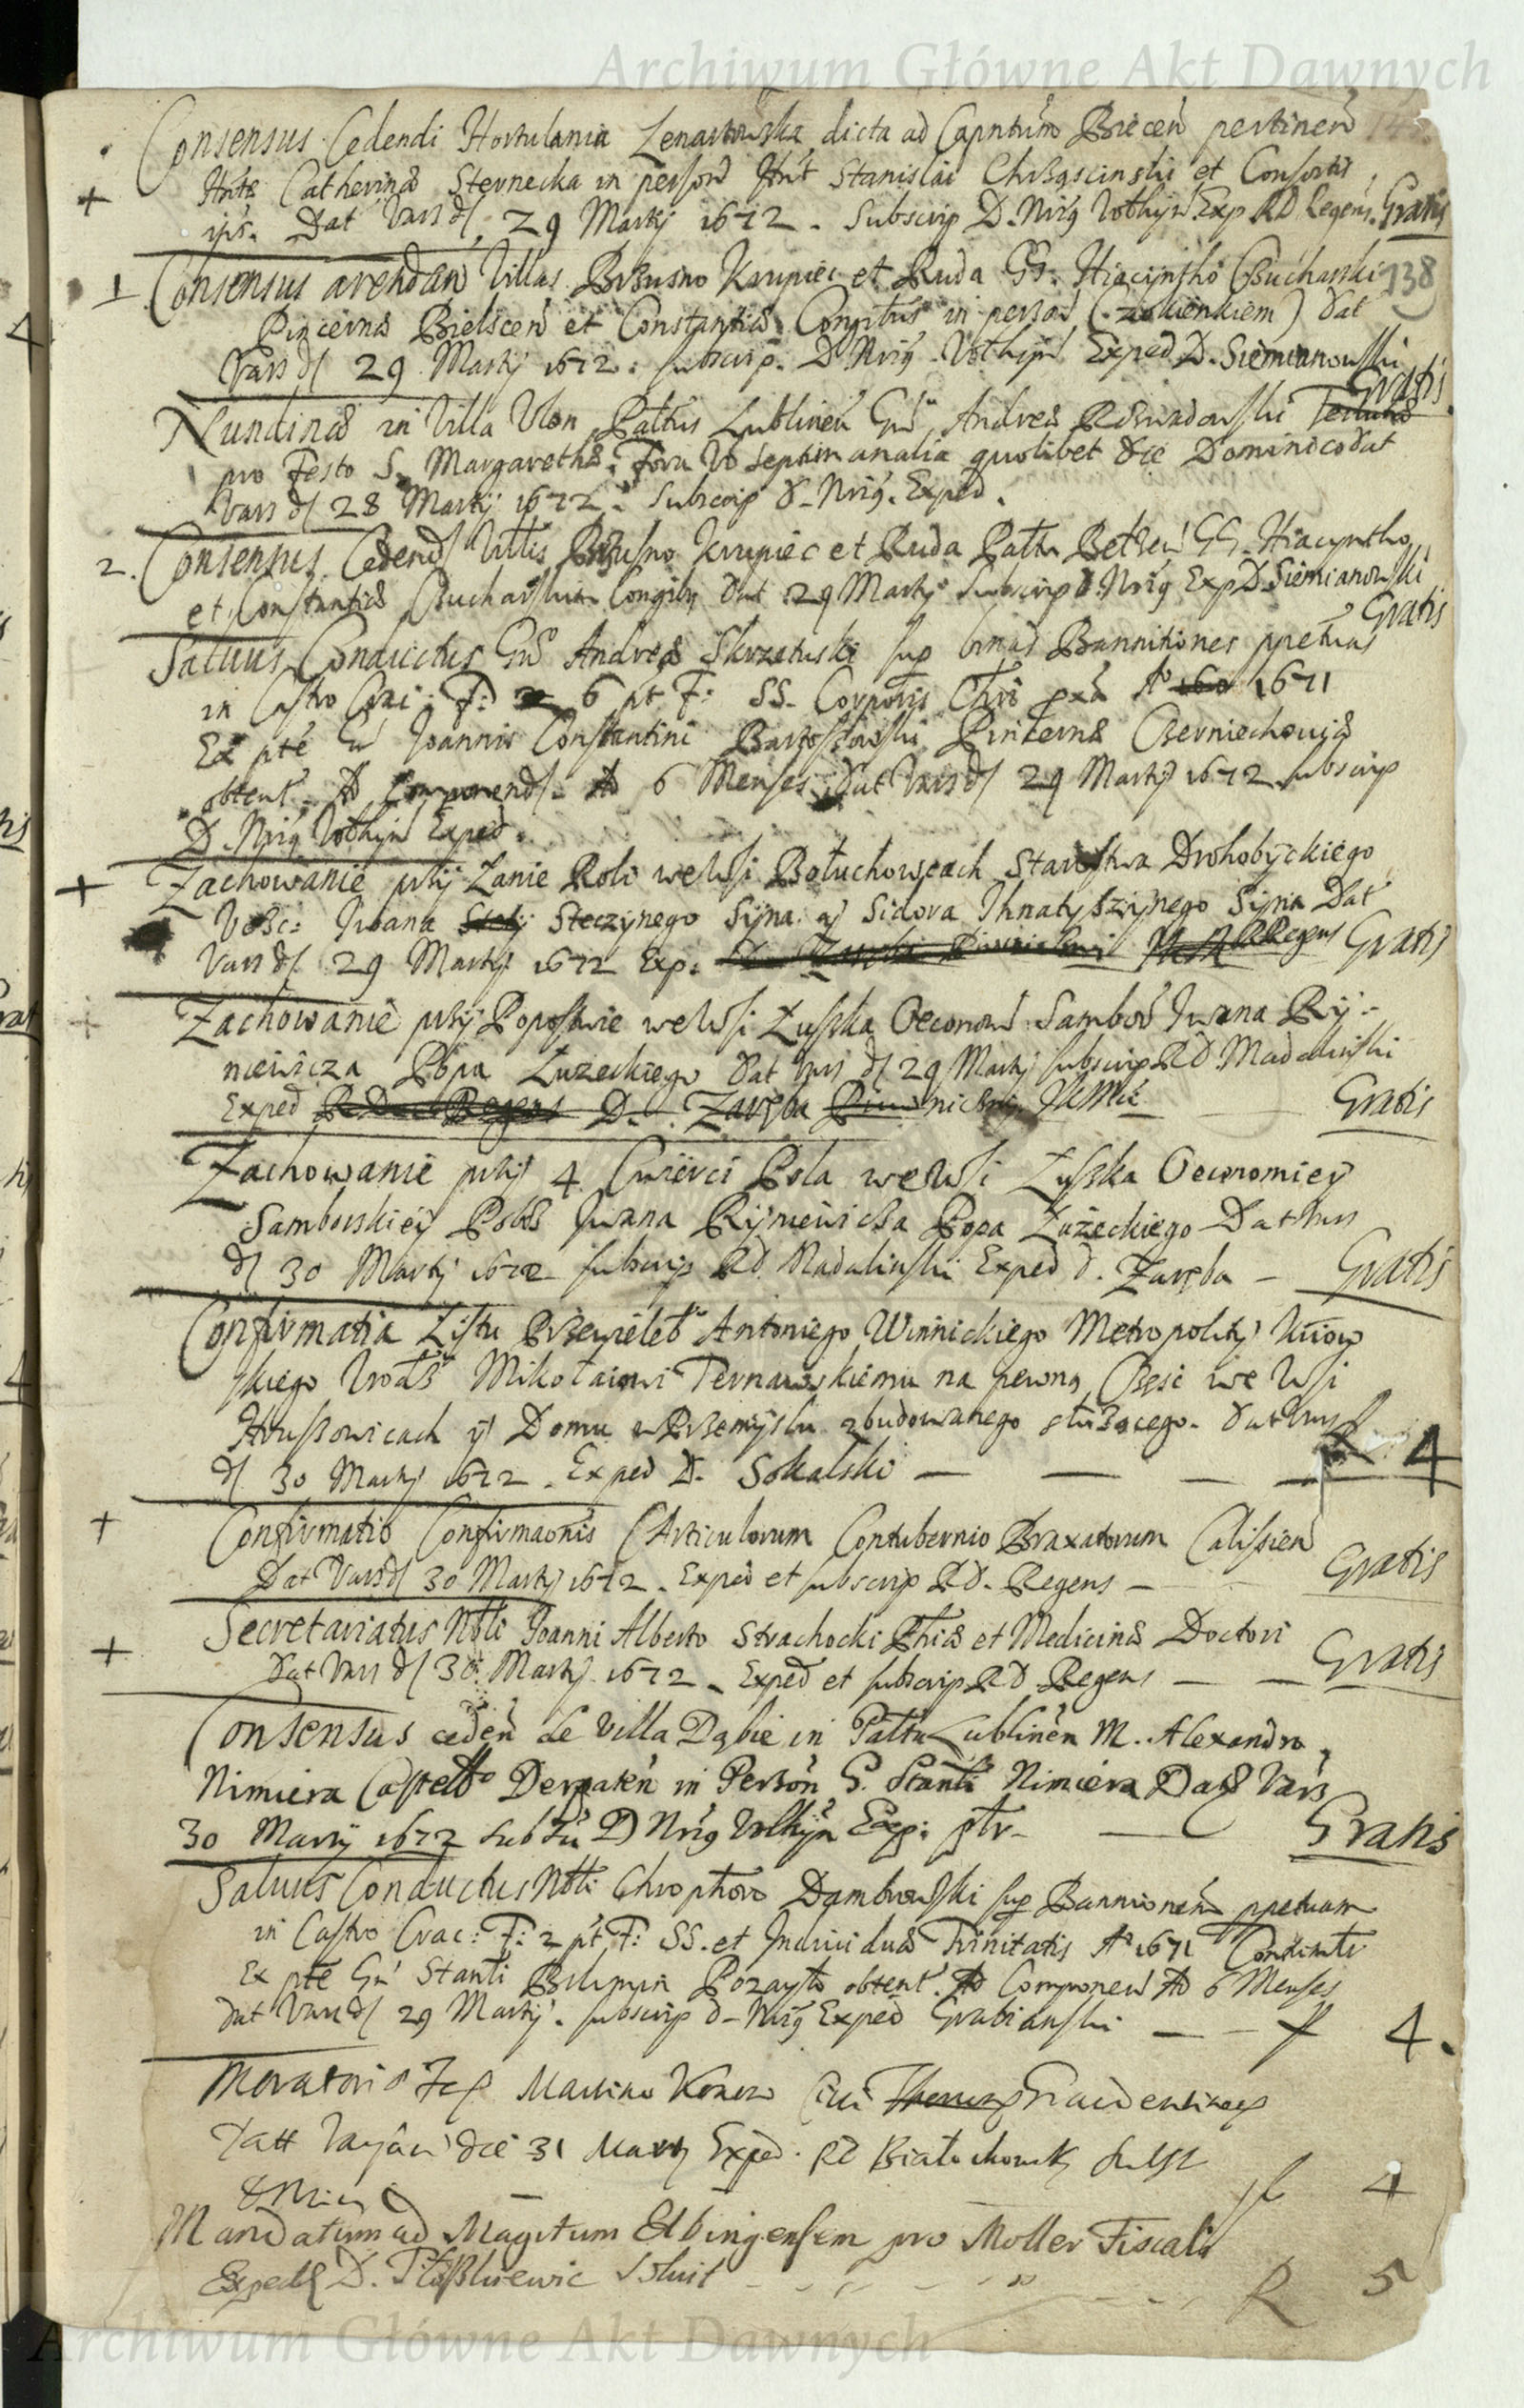 Archiwum Główne Akt Dawnych
Consensus Cedendi Hortulania Zenartowska dicta ad Capntum Biecen pertinen
+ Catherina Sternecka in person Stanislai Chrząscinski et Consortis
ips. Dat Vars d. 29 Martij 1672. Subscrip D. Nrig Vothyn Exp RD Regens. Gratis
1 Consensus arendan Villas Brzusno Krupiec et Ruda GG. Hiacyntho Bucharski 138
Pincerna Bielscen et Constantia Congitus in person (Zokienkiem) Dat
Vars d. 29 Martij 1672. subscrip. D. Nrig. Vothyn Exped D. Siemianowski
Gratis
Nundinas in Villa Ulon Pattus Lublinen Gn. Andrea Rzwadowski
pro Festo S. Margaretha. Fora Vo Septimanalia quolibet die Dominico dat
Vars d. 28 Martij 1672. Subscrip D. Nrig. Exped.
2. Consensus Cedend Villis Brzusno Krupiec et Ruda Pattu Betzen GG. Hiacyntho
et Constantia Bucharskim Congitu dat 29 Martij Subscrip D. Nrig Exp D. Siemianowski
Gratis
Salvus Conductus Gn Andrea Skrzetuski sup binas Bannitiones ppetuas
in Castro Crac: F: 6 pt F: SS. Corporis Chri pxa Ao 1671
Ex pte Gn Joannis Constantini Bartoszowski Pincerna Czerniechovia
obtent. Ad Componend. Ad 6 Menses. Dat Vars d. 29 Martij 1672 subscrip
D. Nrig Vothyn Exped.
+ Zachowanie przÿ Łanie Roli we Wsi Bołuchowcach Starostwa Drohobyckiego
Iwana Steczynego Sÿna aÿ Sidora Ihnatyszÿnego Sÿna Dat
Vars d. 29 Martij 1672 Exp. RD Regens Gratis
Zachowanie przÿ Popostwie we Wsi Łużka Oeconom Sambor Iwana Rÿ-
niewicza Popa Łużeckiego Dat Vars d. 29 Martij subscrip RD Madalinski
Exped R.D. Regens D. Zaręba Gratis
Zachowanie przÿ 4 Cwierci Pola we Wsi Łużka Oeconomieÿ
Samborskieÿ Pobo Iwana Rÿniewicza Popa Łużeckiego Dat Vars
d. 30 Martij 1672 subscrip RD. Madalinski Exped D. Zaręba - Gratis
Confirmatia Listu Przewieleb Antoniego Winnickiego Metropolitÿ Kiiow
skiego Vrodz Mikołaiowi Ternawskiemu na pewną Częsc we Wsi
Hruszowicach ÿ Domu w Przemÿslu zbudowanego służącego. Dat Vars
d. 30 Martij 1672. Exped D. Sokalski — — — 4
+ Confirmatio Confirmaonis Articulorum Contubernio Braxatorum Calissien
Dat Vars d. 30 Martij 1672. Exped et subscrip RD. Regens — Gratis
+ Secretariatus Nbli Joanni Alberto Strachocki Phia et Medicina Doctori
Dat Vars d. 30 Martij 1672. Exped et subscrip RD Regens — — Gratis
Consensus ceden de Villa Dąbie in Pattu Lublinen M. Alexandro
Nimiera Castello Derpaten in Person G. Stanli Nimiera Dat Vars
30 Martij 1672 D Nrig Vothyn Exp: — Gratis
Salvus Conductus Nbli Chrophoro Dambrowski sup Bannionem ppetuam
in Castro Crac: F: 2 pt F: SS. et Individua Trinitatis Ao 1671
Ex pte Gn Stanli obtent. Ad Componen Ad 6 Menses
Dat Vars d. 29 Martij. subscrip D. Nrig Exped Grabianski — — f 4.
Moratoria Martino Civi
Datt die 31 Martij Exped. RD Białochowski
f 4
Mandatum ad Magitum Elbingensem pro Moller Fiscali
Exped D. Solvit R 5
Archiwum Główne Akt Dawnych